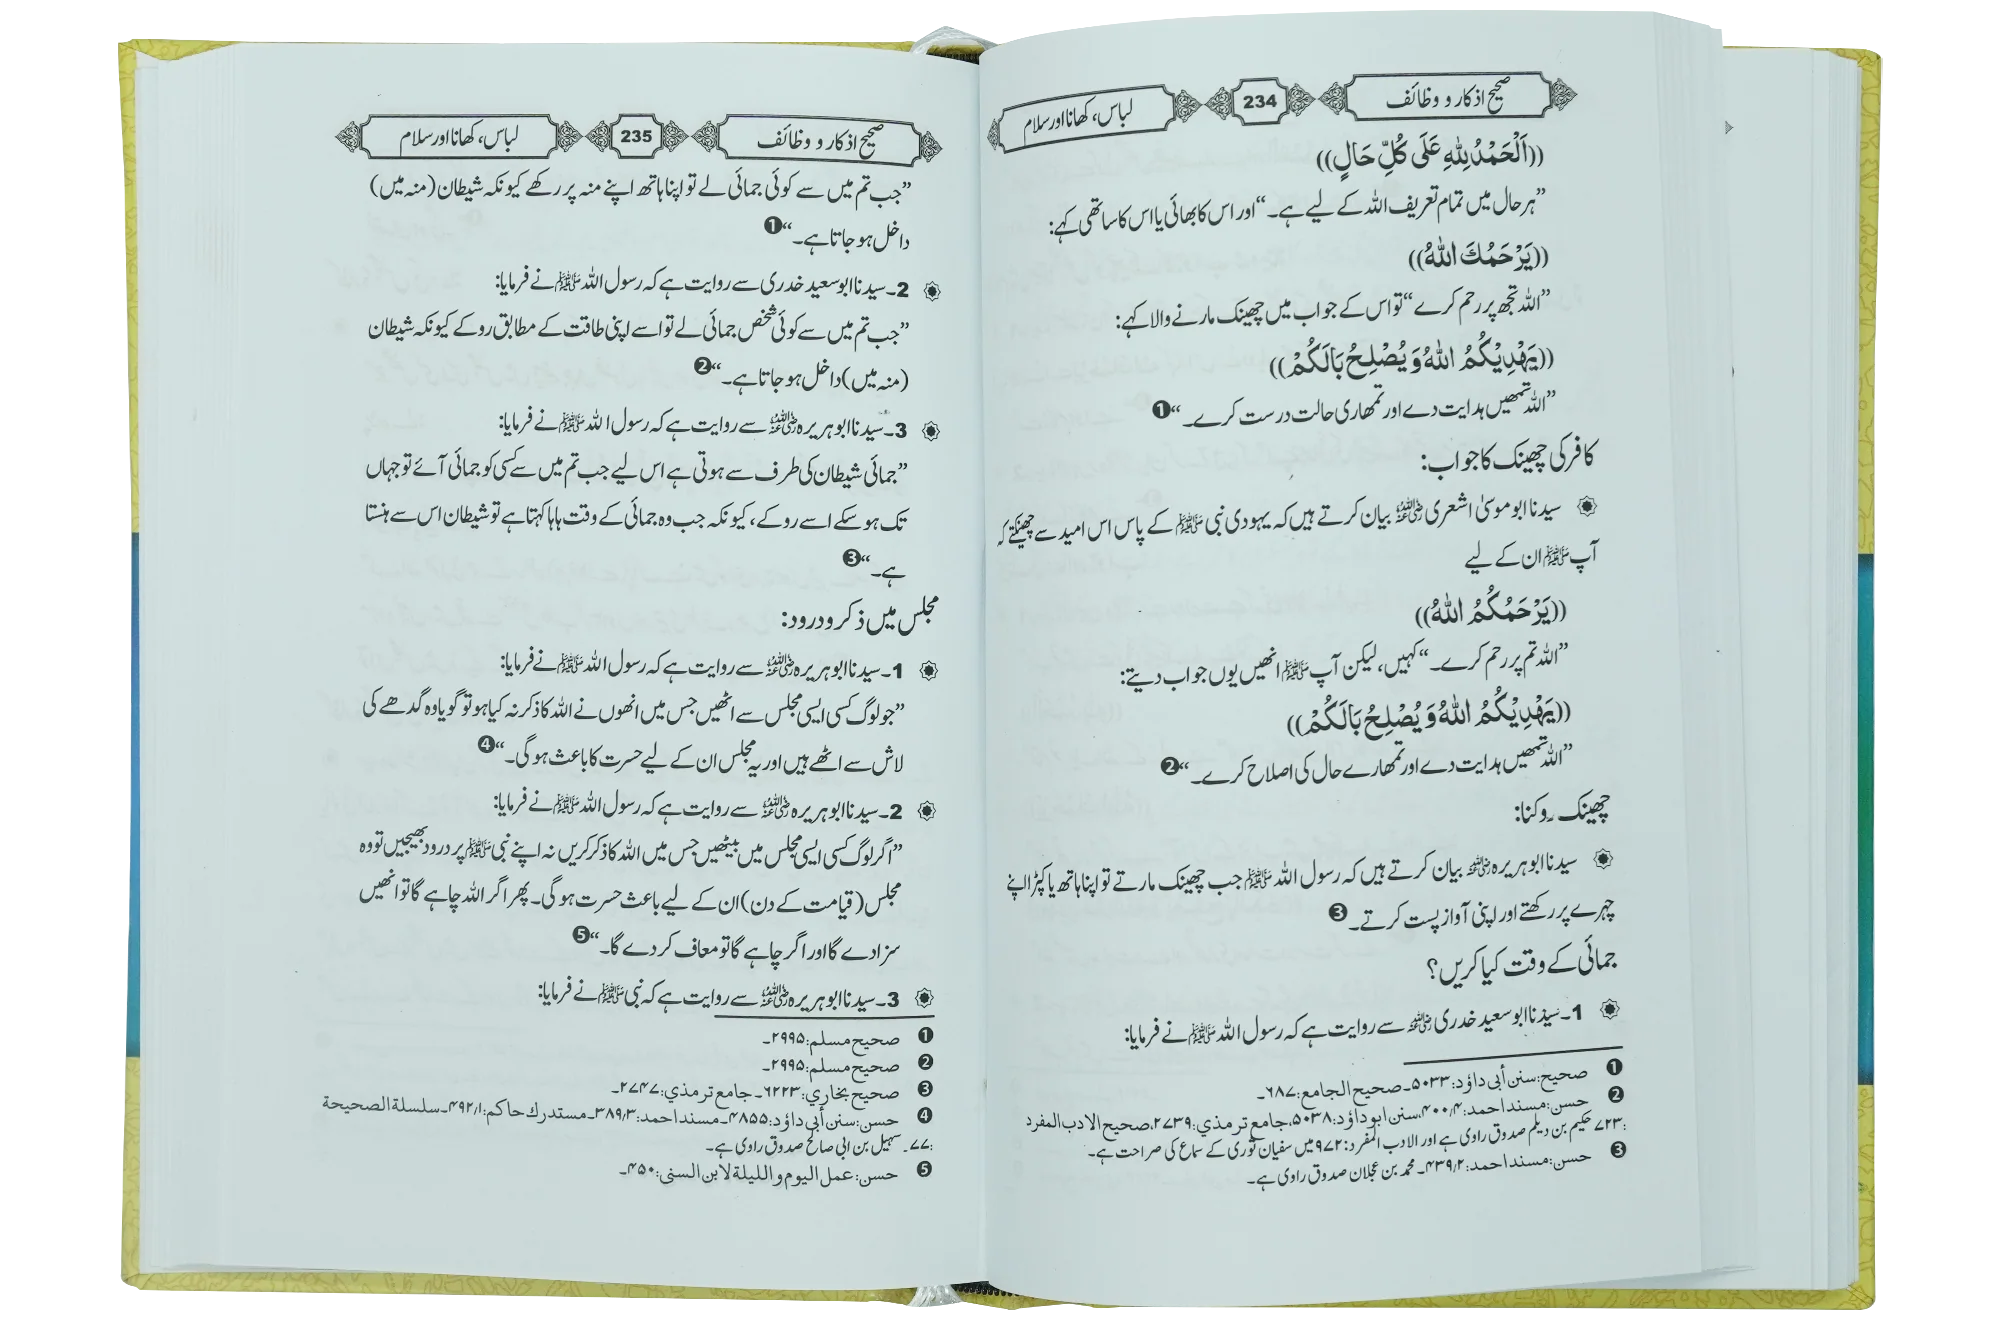 صحیح اذکار و وظائف 234 لباس، کھانا اور سلام
((اَلْحَمْدُ لِلّٰهِ عَلَى كُلِّ حَالٍ))
”ہر حال میں تمام تعریف اللہ کے لیے ہے۔“ اور اس کا بھائی یا اس کا ساتھی کہے:
((يَرْحَمُكَ اللّٰهُ))
”اللہ تجھ پر رحم کرے“ تو اس کے جواب میں چھینک مارنے والا کہے:
((يَهْدِيْكُمُ اللّٰهُ وَ يُصْلِحُ بَالَكُمْ))
”اللہ تمھیں ہدایت دے اور تمھاری حالت درست کرے۔“ ❶
کافر کی چھینک کا جواب:
سیدنا ابو موسیٰ اشعری رضی اللہ عنہ بیان کرتے ہیں کہ یہودی نبی ﷺ کے پاس اس امید سے چھینکتے کہ
آپ ﷺ ان کے لیے
((يَرْحَمُكُمُ اللّٰهُ))
”اللہ تم پر رحم کرے۔“ کہیں، لیکن آپ ﷺ انھیں یوں جواب دیتے:
((يَهْدِيْكُمُ اللّٰهُ وَ يُصْلِحُ بَالَكُمْ))
”اللہ تمھیں ہدایت دے اور تمھارے حال کی اصلاح کرے۔“ ❷
چھینک روکنا:
سیدنا ابو ہریرہ رضی اللہ عنہ بیان کرتے ہیں کہ رسول اللہ ﷺ جب چھینک مارتے تو اپنا ہاتھ یا کپڑا اپنے
چہرے پر رکھتے اور اپنی آواز پست کرتے۔ ❸
جمائی کے وقت کیا کریں؟
1۔ سیدنا ابو سعید خدری رضی اللہ عنہ سے روایت ہے کہ رسول اللہ ﷺ نے فرمایا:
❶ صحیح: سنن أبی داؤد: ۵۰۳۳۔ صحیح الجامع: ۶۸۷۔
❷ حسن: مسند احمد: ۴۰۰/۴، سنن ابو داؤد: ۵۰۳۸، جامع ترمذي: ۲۷۳۹، صحیح الادب المفرد
:۷۲۳ حکیم بن دیلم صدوق راوی ہے اور الادب المفرد: ۹۷۲ میں سفیان ثوری کے سماع کی صراحت ہے۔
❸ حسن: مسند احمد: ۴۳۹/۲۔ محمد بن عجلان صدوق راوی ہے۔
صحیح اذکار و وظائف 235 لباس، کھانا اور سلام
”جب تم میں سے کوئی جمائی لے تو اپنا ہاتھ اپنے منہ پر رکھے کیونکہ شیطان (منہ میں)
داخل ہو جاتا ہے۔“ ❶
2۔ سیدنا ابو سعید خدری سے روایت ہے کہ رسول اللہ ﷺ نے فرمایا:
”جب تم میں سے کوئی شخص جمائی لے تو اسے اپنی طاقت کے مطابق روکے کیونکہ شیطان
(منہ میں) داخل ہو جاتا ہے۔“ ❷
3۔ سیدنا ابو ہریرہ رضی اللہ عنہ سے روایت ہے کہ رسول اللہ ﷺ نے فرمایا:
”جمائی شیطان کی طرف سے ہوتی ہے اس لیے جب تم میں سے کسی کو جمائی آئے تو جہاں
تک ہو سکے اسے روکے، کیونکہ جب وہ جمائی کے وقت ہاہا کہتا ہے تو شیطان اس سے ہنستا
ہے۔“ ❸
مجلس میں ذکر و درود:
1۔ سیدنا ابو ہریرہ رضی اللہ عنہ سے روایت ہے کہ رسول اللہ ﷺ نے فرمایا:
”جو لوگ کسی ایسی مجلس سے اٹھیں جس میں انھوں نے اللہ کا ذکر نہ کیا ہو تو گویا وہ گدھے کی
لاش سے اٹھے ہیں اور یہ مجلس ان کے لیے حسرت کا باعث ہو گی۔“ ❹
2۔ سیدنا ابو ہریرہ رضی اللہ عنہ سے روایت ہے کہ رسول اللہ ﷺ نے فرمایا:
”اگر لوگ کسی ایسی مجلس میں بیٹھیں جس میں اللہ کا ذکر کریں نہ اپنے نبی ﷺ پر درود بھیجیں تو وہ
مجلس (قیامت کے دن) ان کے لیے باعث حسرت ہو گی۔ پھر اگر اللہ چاہے گا تو انھیں
سزا دے گا اور اگر چاہے گا تو معاف کر دے گا۔“ ❺
3۔ سیدنا ابو ہریرہ رضی اللہ عنہ سے روایت ہے کہ نبی ﷺ نے فرمایا:
❶ صحیح مسلم: ۲۹۹۵۔
❷ صحیح مسلم: ۲۹۹۵۔
❸ صحیح بخاري: ۶۲۲۳۔ جامع ترمذي: ۲۷۴۷۔
❹ حسن: سنن أبی داؤد: ۴۸۵۵۔ مسند احمد: ۳۸۹/۳۔ مستدرك حاكم: ۴۹۲/۱۔ سلسلة الصحیحة
:۷۷۔ سہیل بن ابی صالح صدوق راوی ہے۔
❺ حسن: عمل الیوم و اللیلة لابن السنی: ۴۵۰۔